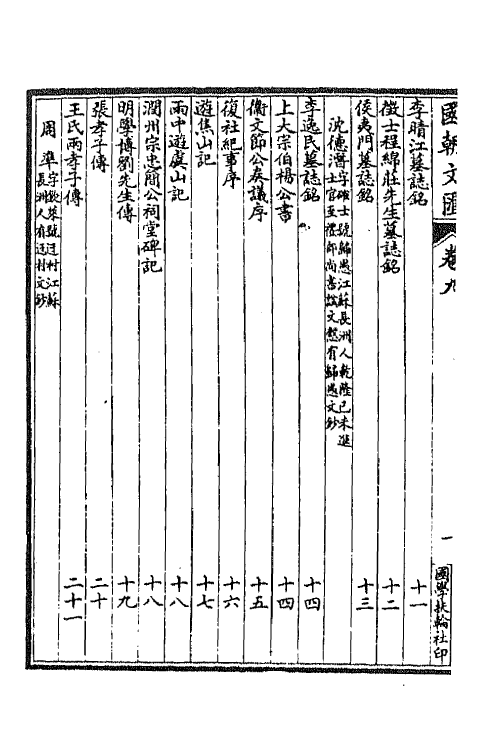 國朝文匯 卷九 一 國學扶輪社印
李晴江墓誌銘 十一
徵士程綿莊先生墓誌銘 十二
侯夷門墓誌銘 十三
沈德潛 字確士號歸愚江蘇長洲人乾隆己未進
士官至禮部尚書諡文慤有歸愚文鈔
李逸民墓誌銘 十四
上大宗伯楊公書 十四
衞文節公奏議序 十五
復社紀事序 十六
遊焦山記 十七
雨中遊虞山記 十八
潤州宗忠簡公祠堂碑記 十八
明學博劉先生傳 十九
張孝子傳 二十
王氏兩孝子傳 二十一
周準 字欽萊號迂村江蘇
長洲人有迂村文鈔